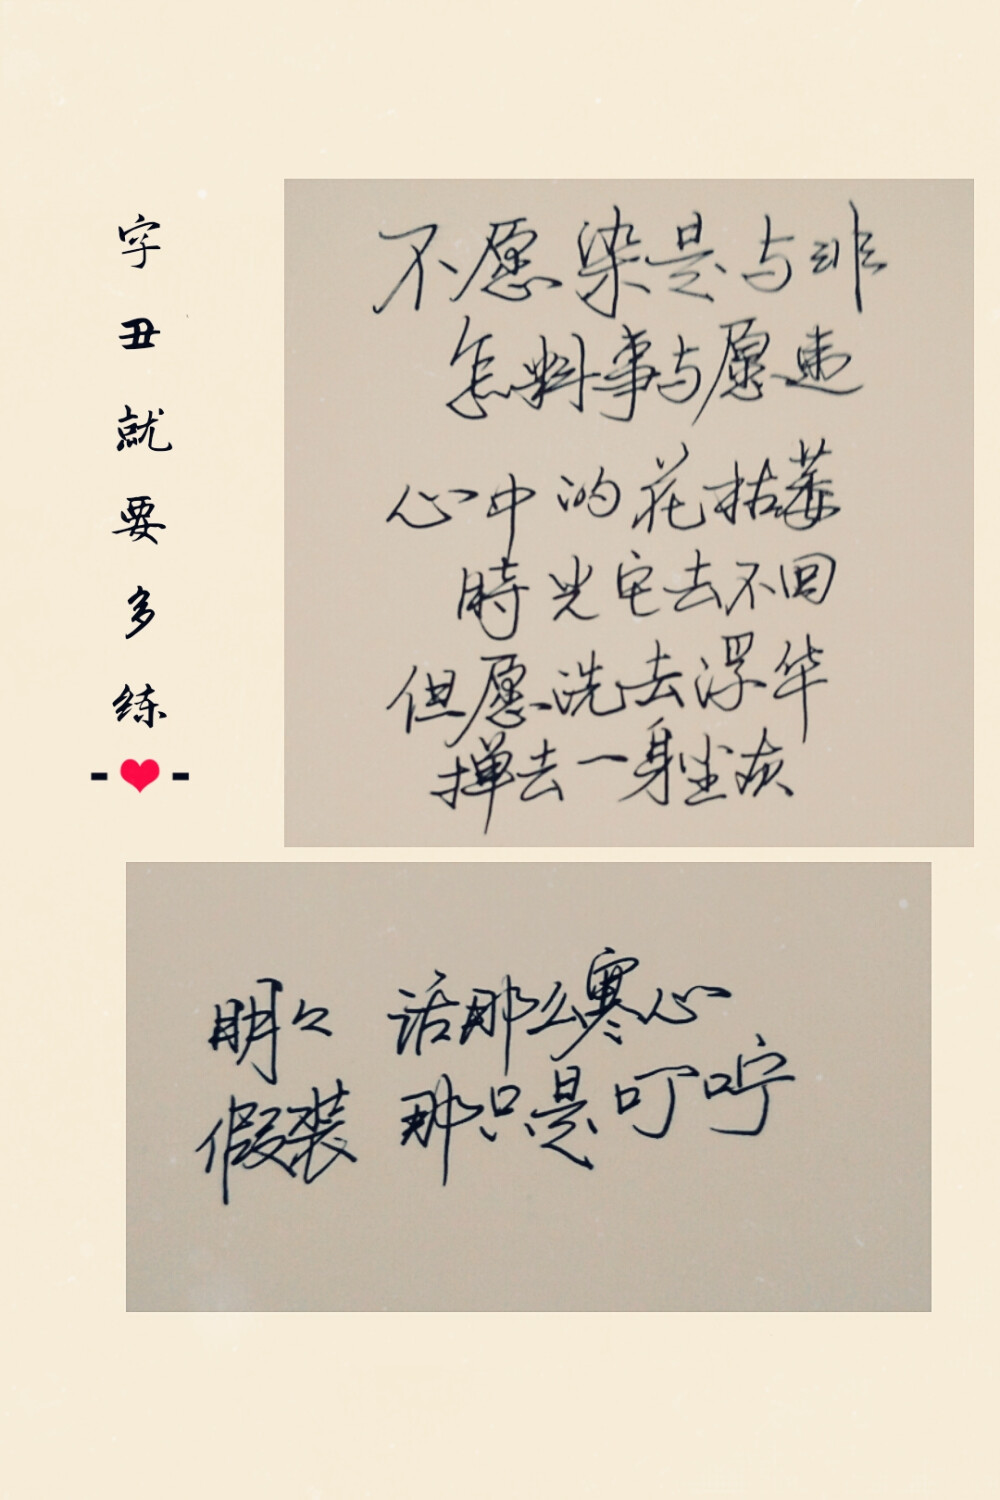 字丑就要多练
不愿染是与非
怎料事与愿违
心中的花枯萎
時光它去不回
但愿洗去浮华
掸去一身尘灰
明々 话那么寒心
假装 那只是叮咛